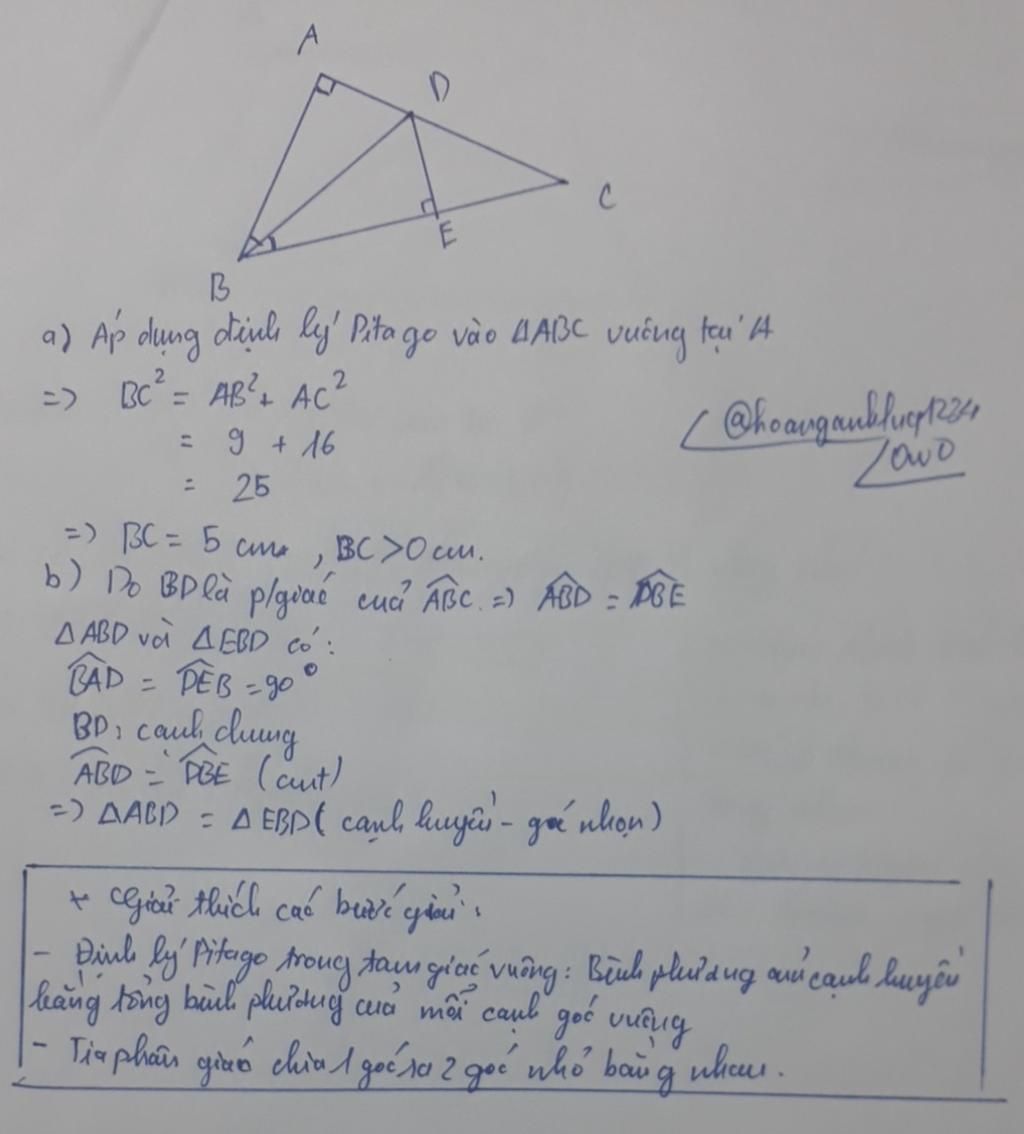 A
D
C
E
B
a) Áp dụng định lý Pitago vào ΔABC vuông tại A
=> BC² = AB² + AC²
= 9 + 16
= 25
@hoanganhluy1234
OwO
=> BC = 5 cm, BC > 0 cm.
b) Do BD là p/giác của ABC => ABD = DBE
ΔABD và ΔEBD có:
BAD = DEB = 90°
BD: cạnh chung
ABD = DBE (cmt)
=> ΔABD = ΔEBD (cạnh huyền - góc nhọn)
+ Giải thích các bước giải:
- Định lý Pitago trong tam giác vuông: Bình phương của cạnh huyền
bằng tổng bình phương của mỗi cạnh góc vuông
- Tia phân giác chia 1 góc ra 2 góc nhỏ bằng nhau.